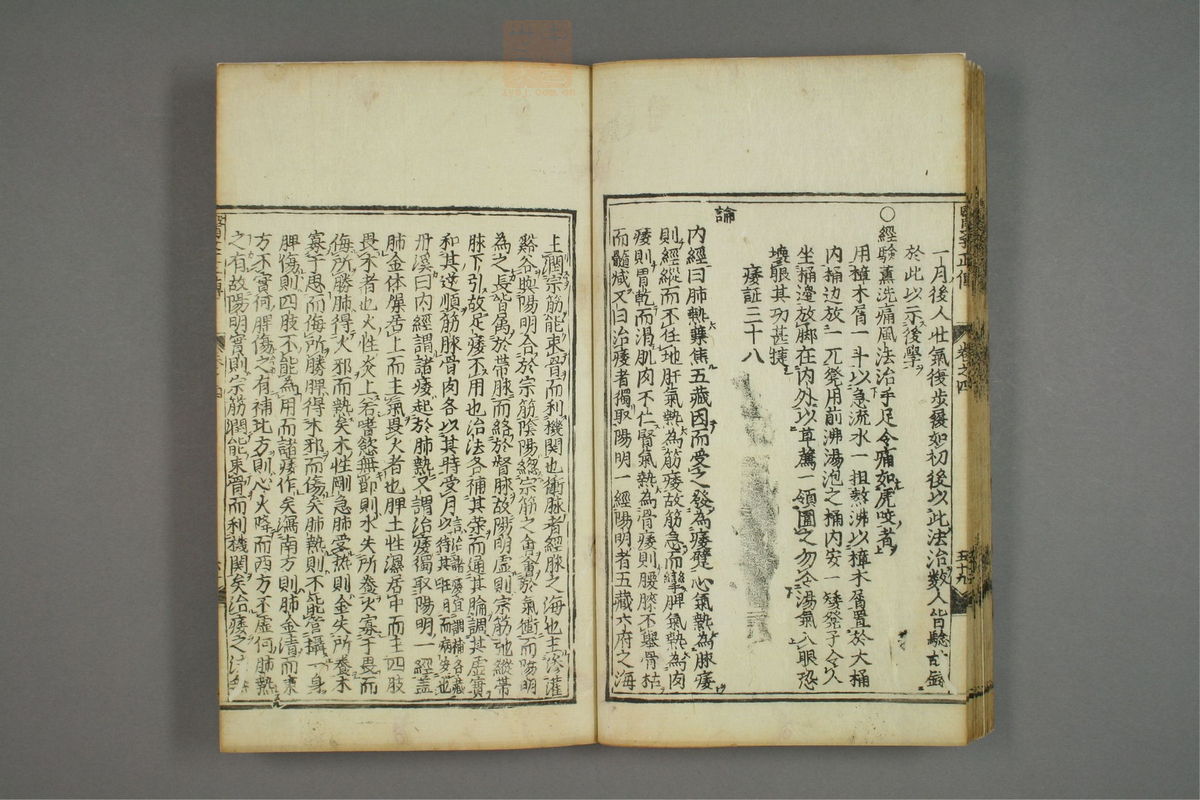 一月後人壯氣復步履如初後以此法治數人皆驗
於此以示後學
○經驗薰洗痛風法治手足冷痛如虎咬者
用樟木屑一斗以急流水一担熬沸以樟木屑置於大桶
內桶边放一兀凳用前沸湯泡之桶內安一矮凳子令人
坐桶邊放脚在內外以草薦一領圍之勿令湯氣入眼恐
壞眼其功甚捷
痿証三十八
論
內經曰肺熱葉焦五藏因而受之發為痿躄心氣熱為脉痿
則經縱而不任地肝氣熱為筋痿故筋急而攣脾氣熱為肉
痿則胃乾而渴肌肉不仁腎氣熱為骨痿則腰膝不舉骨枯
而髓減又曰治痿者獨取陽明一經陽明者五藏六府之海
主潤宗筋能束骨而利機関也衝脉者經脉之海也主滲灌
谿谷與陽明合於宗筋陰陽總宗筋之會會於氣衝而陽明
為之長皆属於帶脉而絡於督脉故陽明虛則宗筋弛縱帶
脉下引故足痿不用也治法各補其榮而通其腧調其虛實
和其逆順筋脉骨肉各以其時受月以言治諸痿宜調補各藏待其旺月而病安也
丹溪曰內經謂諸痿起於肺熱又謂治痿獨取陽明一經盖
肺金体燥居上而主氣畏火者也脾土性濕居中而主四肢
畏木者也火性炎上若嗜慾無節則水失所養火寡于畏而
侮所勝肺得火邪而熱矣木性剛急肺受熱則金失所養木
寡于畏而侮所勝脾得木邪而傷矣肺熱則不能管攝一身
脾傷則四肢不能為用而諸痿作矣瀉南方則肺金清而東
方不實何脾傷之有補北方則心火降而西方不虛何肺熱
之有故陽明實則宗筋潤能束骨而利機関矣治痿之法